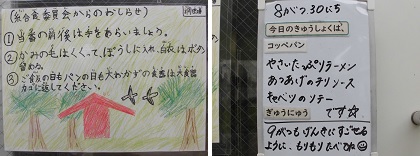 (給食委員会からのおしらせ)
① 当番の前後は手をあらいましょう。
② かみの毛はくくって、ぼうしに入れ、白衣はボタン
留める。
③ ご飯の日もパンの日も大おかずの食器は大食器
カゴに返してください。
8がつ30にち
今日のきゅうしょくは、
コッペパン
やさいたっぷりラーメン
あつあげのチリソース
キャベツのソテー
ぎゅうにゅう です☆
9がつもげんきにすごせる
ように、もりもりたべてね